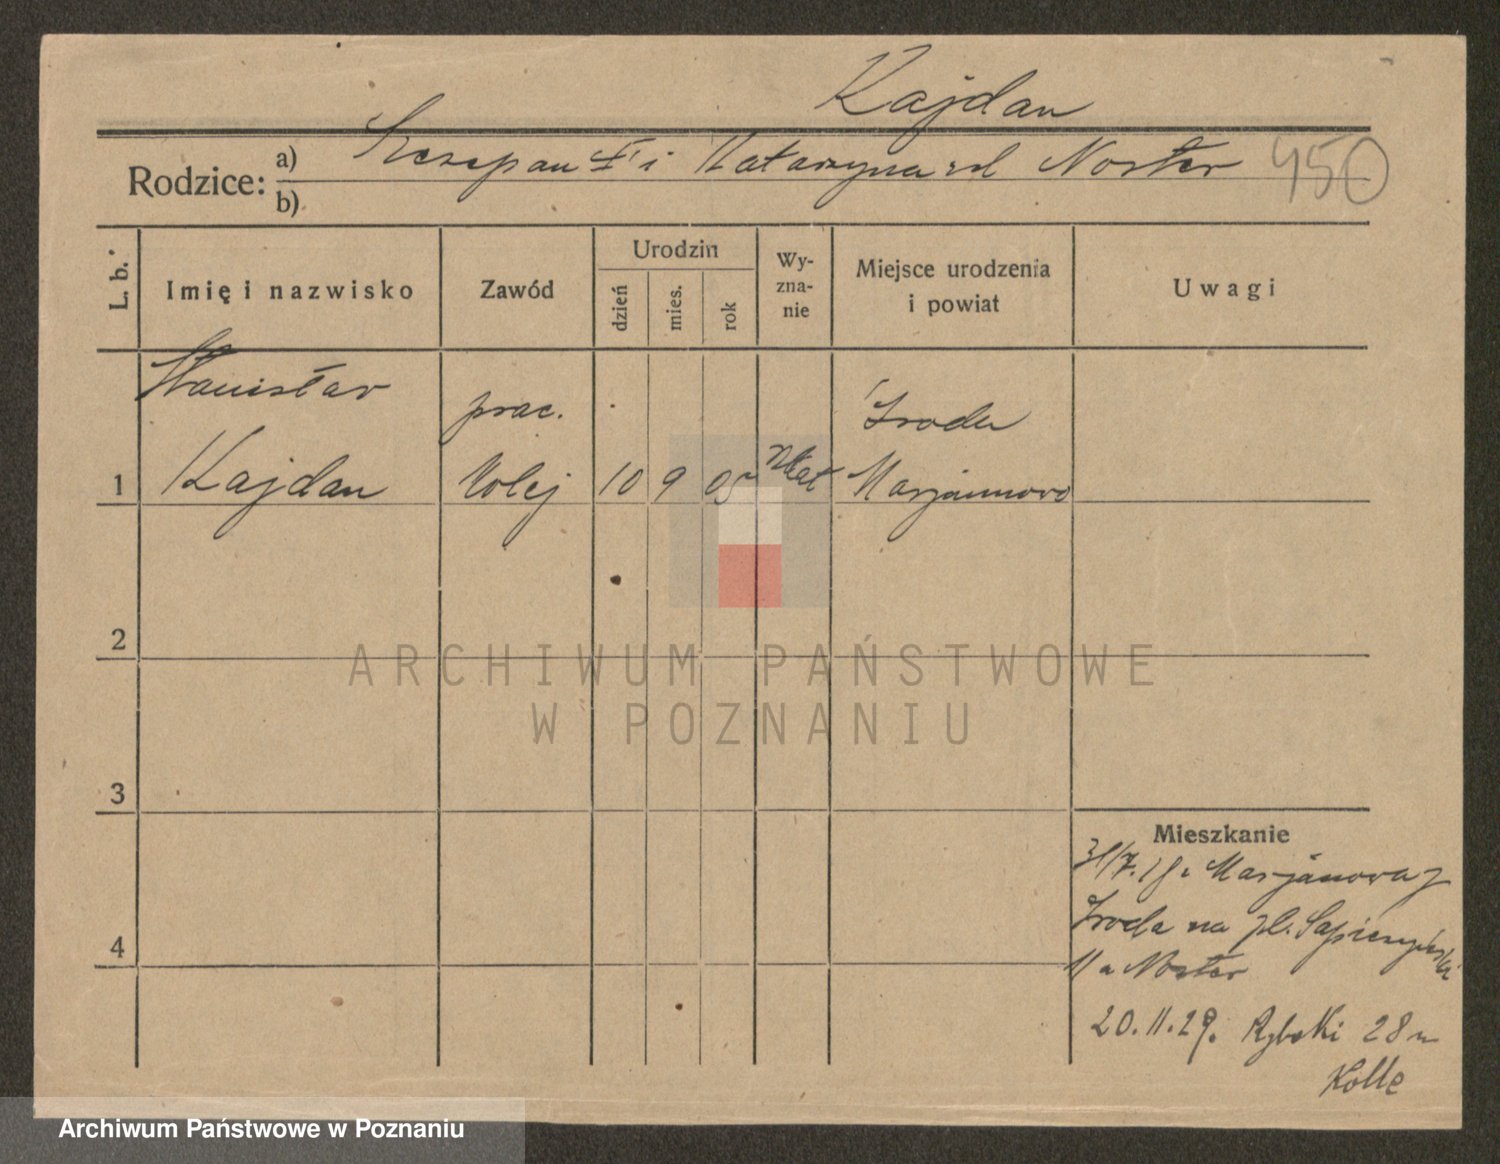 Kajdan
Rodzice: a) Szczepan † i Katarzyna zd Noster 450
b)
L. b. Imię i nazwisko Zawód Urodzin dzień mies. rok Wy-zna-nie Miejsce urodzenia i powiat Uwagi
Stanisław prac. Środa
1 Kajdan Kolej 10 9 Rkat Marjanowo
2
3
4
Mieszkanie
31/7. Marjanowa
Środa na pl. Sapieżyński
u Noster
20.11.29. Rybaki 28 u
Kolle
ARCHIWUM PAŃSTWOWE
W POZNANIU
Archiwum Państwowe w Poznaniu